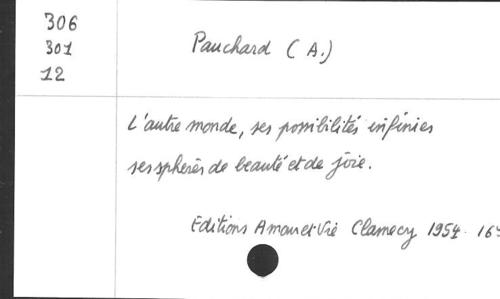 306
301
12
Pauchard (A.)
L'autre monde, ses possibilités infinies
ses sphères de beauté et de joie.
Editions Amour et Vie Clamecy 1954. 164